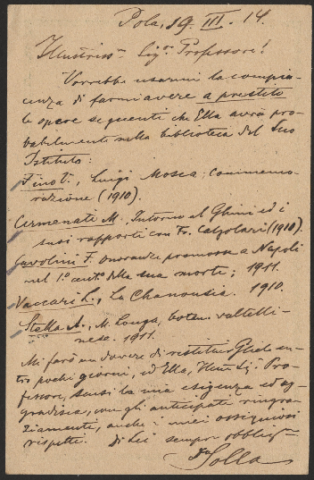 Pola, 19. III. 14.
Illustriss. Sigr. Professore!
Vorrebbe usarmi la compia-
cenza di farmi avere a prestito
le opere seguenti che Ella avrà pro-
babilmente nella biblioteca del Suo
Istituto:
Luigi Mosca; commemo-
razione (1910).
Cermenati M. Intorno al Ghini ed i
suoi rapporti con Fr. Calzolari (1910).
Cavolini F. Onoranze promosse a Napoli
nel 1.° cent.° della sua morte; 1911.
Vaccari L., La Chanousia. 1910.
Stella A., M. Longa, botan. valtelli-
nese. 1911.
Mi farò un dovere di restituirGliele en-
tro pochi giorni, ed Ella, Illustr. Pro-
fessore, scusi la mia esigenza ed ag-
gradisca, con gli anticipati ringra-
ziamenti, anche i miei ossequiosi
rispetti. Di Lei sempre obbligo
Solla